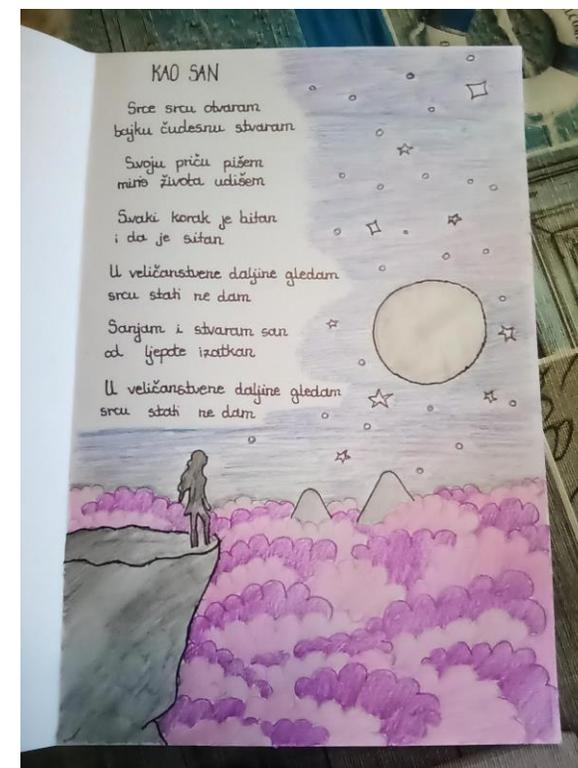 KAO SAN
Srce srcu otvaram
bajku čudesnu stvaram
Svoju priču pišem
miris života udišem
Svaki korak je bitan
i da je sitan
U veličanstvene daljine gledam
srcu stati ne dam
Sanjam i stvaram san
od ljepote izatkan
U veličanstvene daljine gledam
srcu stati ne dam